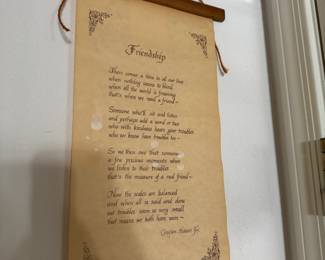 Friendship
There comes a time in all our lives
when nothing seems to blend
when all the world is frowning
that's when we need a friend~
Someone who'll sit and listen
and perhaps add a word or two
who with kindness hears your troubles
who we know have troubles too~
So we then see that someone
a few precious moments when
we listen to their troubles
that's the measure of a real friend~
Now the scales are balanced
and when all is said and done
our troubles seem so very small
that means we both have won~